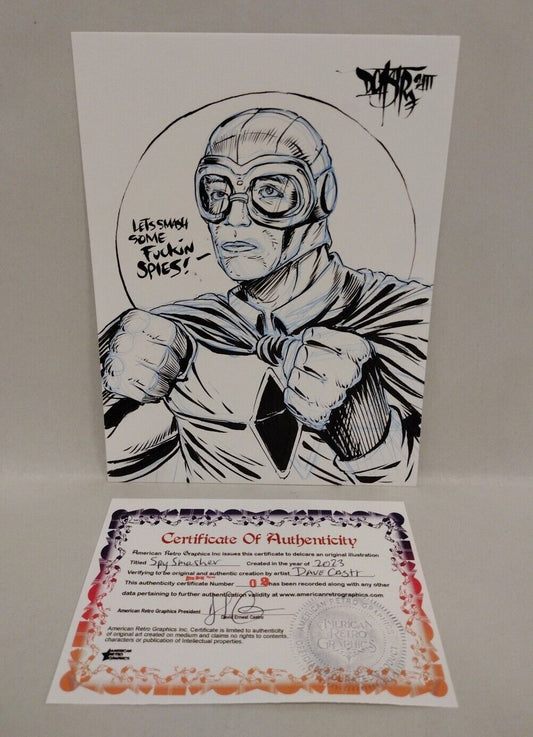 LETS SMASH
SOME
FUCKIN
SPIES!
Certificate Of Authenticity
American Retro Graphics Inc issues this certificate to delcare an original illustration
Titled Spy Smasher Created in the year of 2023
Verifying to be original and authentic creation by artist DAVE CASTR
This authenticity certificate Number 02 has been recorded along with any other
data pertaining to further authentication validity at www.americanretrographics.com
American Retro Graphics President
David Ernest Castro
American Retro Graphics Inc. Certificate is limited to authenticity
of original art created on medium and claims no rights to contents,
characters or publication of Intellectual properties.
AMERICAN
RETRO
GRAPHICS
AMERICAN
RETRO
GRAPHICS